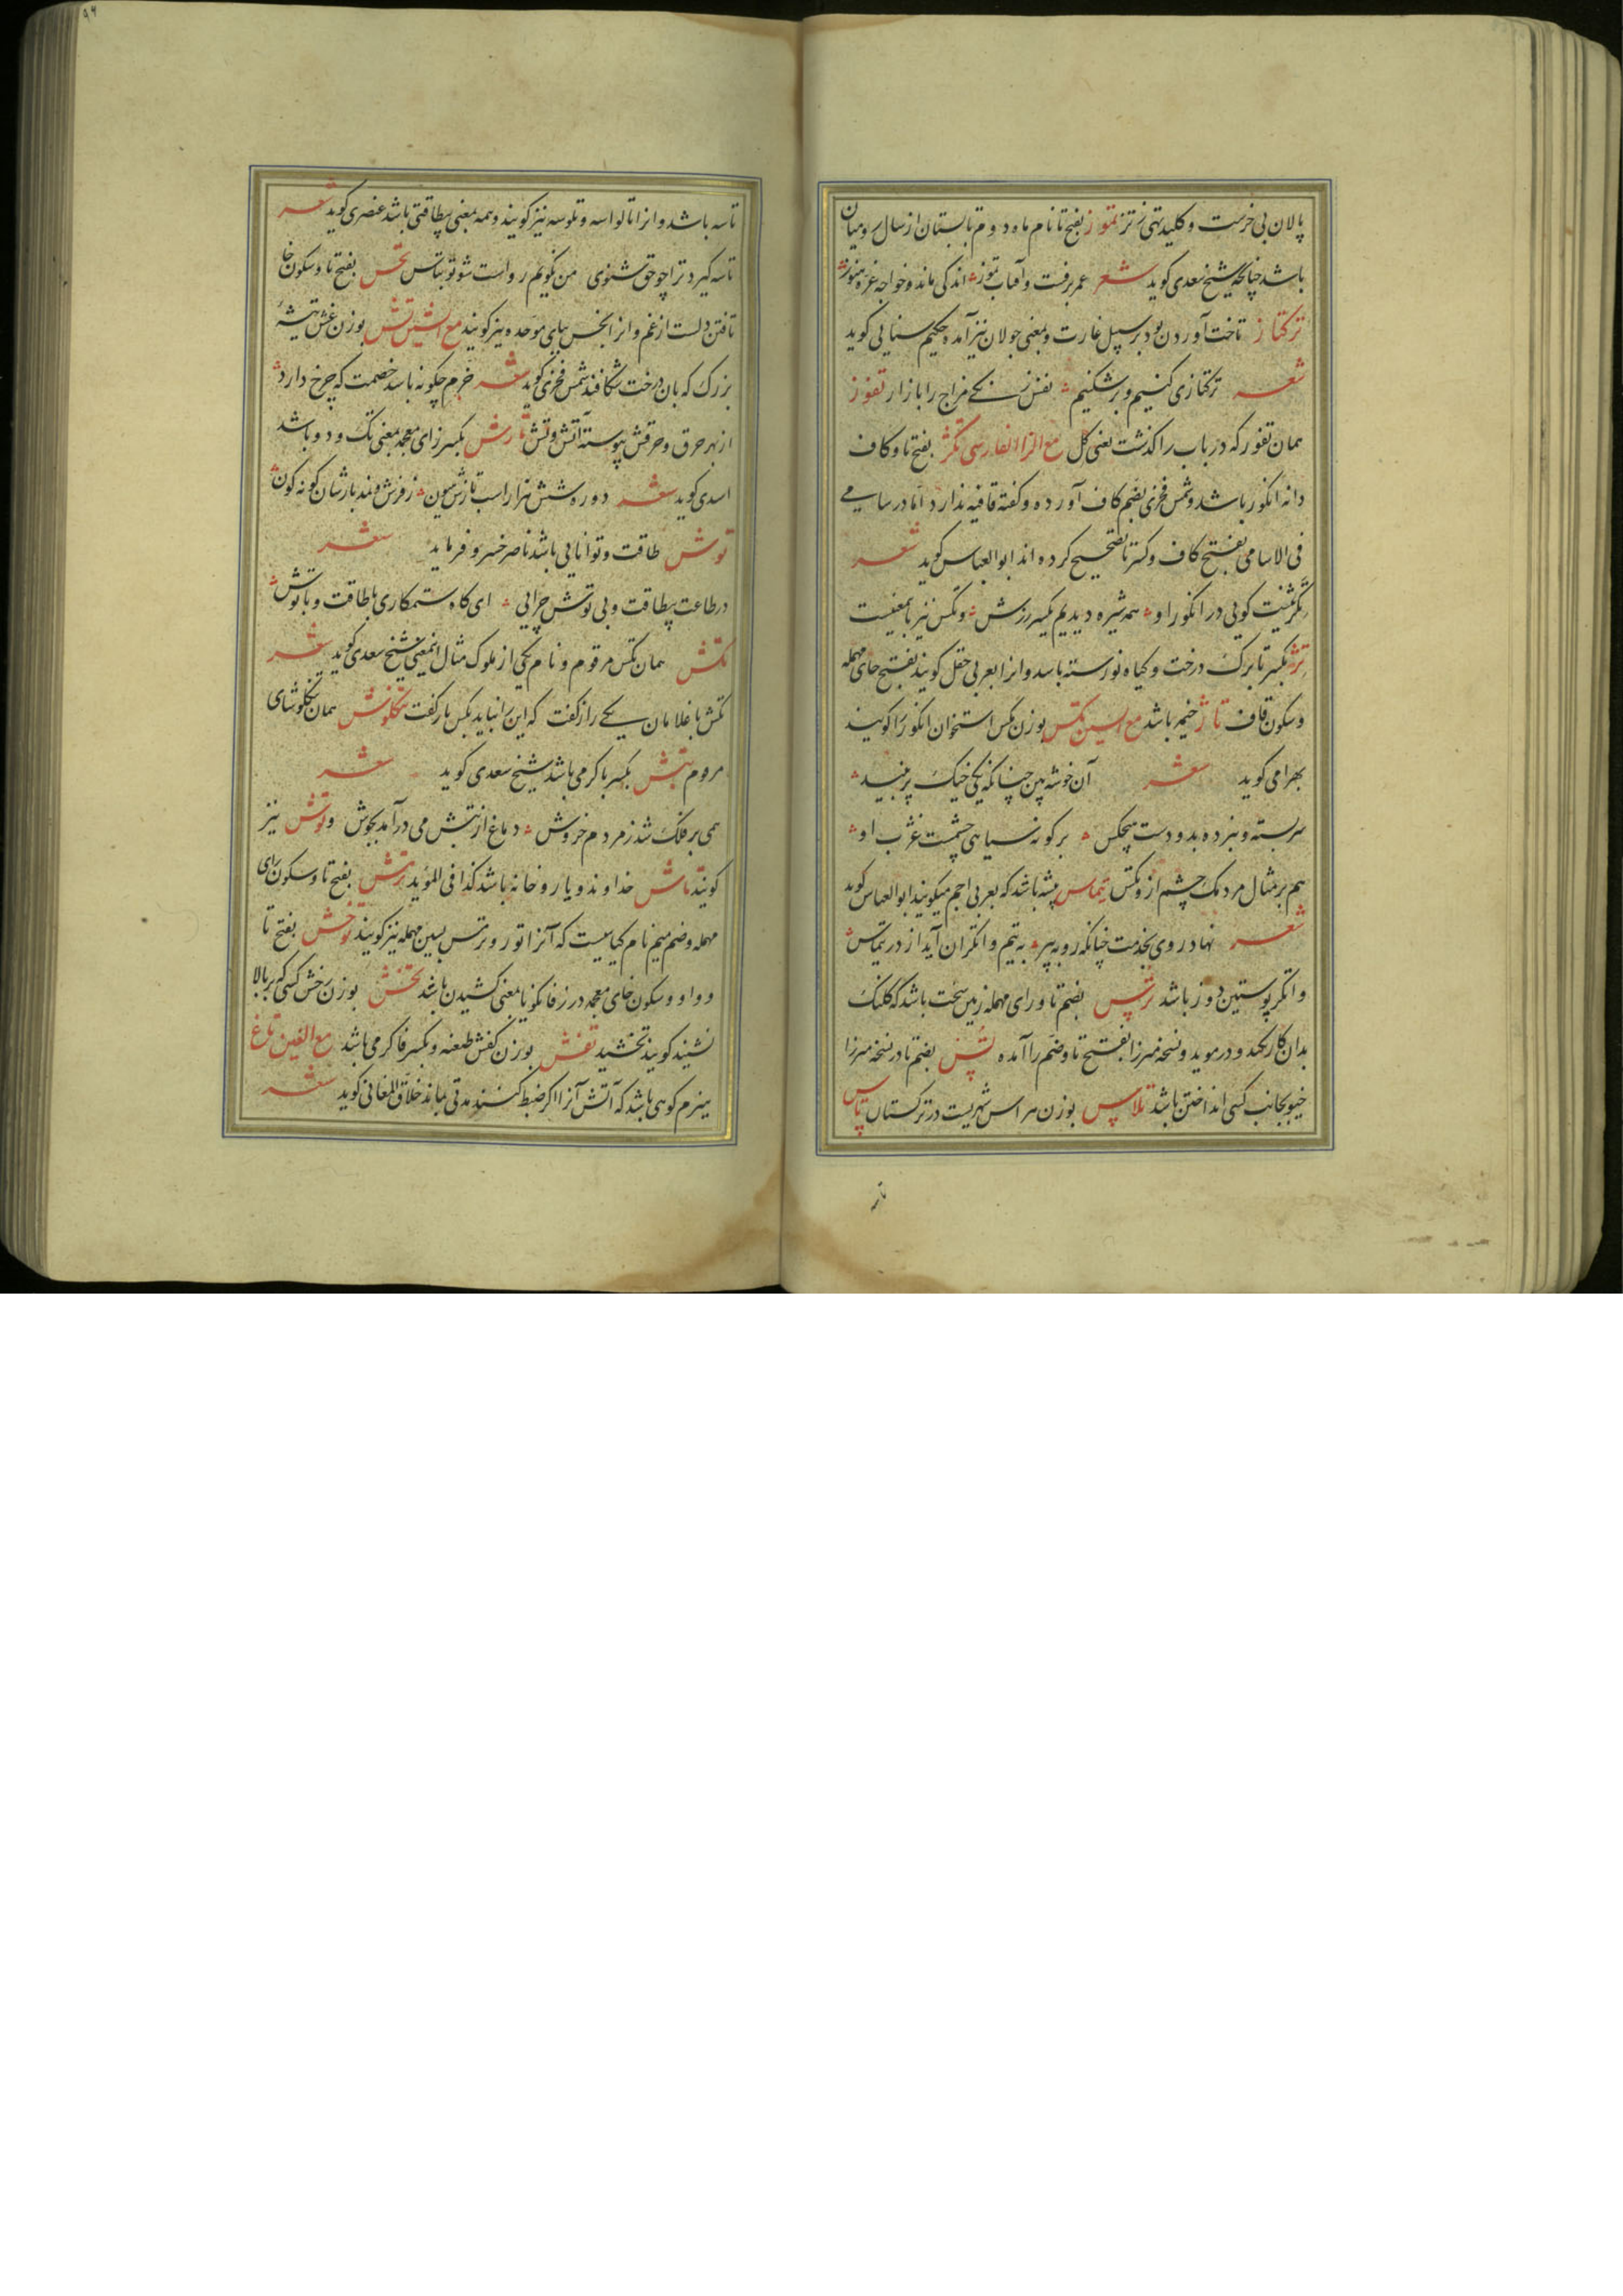 پالان بی خرست و کلید تهی تر تموز بفتح تا نام ماه دوم تابستان از سال رومیان
باشد چنانچه شیخ سعدی کوید شعر عمر برفت و آفتاب تموز اندکی ماند و خواجه غره هنوز
ترکتاز تاخت آوردن بود بر سپیل غارت و بمعنی جولان نیز آمده حکیم سنایی کوید
شعر ترکتازی کنیم و برشکنیم نفس زنکی مزاج را بازار تغوز
همان تفور که در باب را کذشت یعنی کل مع الزا الفارسی تکژ بفتح تا و کاف
دانه انکور باشد و شمس فخری بضم کاف آورده و کفته قافیه ندارد اما در سامی
فی الاسامی بفتح کاف و کسر تا تصحیح کرده اند ابوالعباس کوید شعر
تکژ نیست کویی در انکور او همه شیره دیدیم یکسر رزش و تکس نیز بامعنیست
تژ بکسر تا برک درخت و کیاه نورسته باسد و انرا بعربی حقل کویند بفتح حای مهمله
و سکون قاف تاژ خیمه باشد مع السین تکس بوزن مکس استخوان انکور را کویند
بهرامی کوید شعر آن خوشه بین چنانکه یکی خیک پر نبید
سربسته و نبرده بدو دست هیچکس بر کونه سیاهی چشمست غژب او
هم بر مثال مردمک چشم ازو تکس تیماس پیشه باشد که بعربی اجم میکویند ابوالعباس کوید
شعر نهاد روی بخدمت چنانکه روبه پیر به تیم وانکران آید از در تیماس
وانکر پوستین دوز باشد ترپس بضم تا و رای مهمله زمین سخت باشد که کلنک
بدان کار نکند و در موید و نسخه میرزا بفتح تا و ضم را آمده تس بضم تا در نسخه میرزا
خیو بجانب کسی انداختن باشد تلاس بوزن هراس شهریست در ترکستان تاس
تاسه باشد و انرا تالواسه و تلوسه نیز کویند و همه بمعنی بیطاقتی باشد عنصری کوید شعر
تاسه کیرد ترا چو حق شنوی من نکویم رواست شو تو بتاس تخس بفتح تا و سکون خا
تافتن دلست از غم و انرا بخس ببای موحده نیز کویند مع الشین تش بوزن غش تیشه
بزرک که بان درخت شکافند شمس فخری کوید شعر خرم چکونه باسد خصمت که چرخ دارد
از بهر حرق و حرقش پیوسته آتش و تش تازش بکسر زای معجمه بمعنی تک و دو باشد
اسدی کوید شعر دو ره شش هزار اسب تازش هیون ز فرش و نمد بارشان کونه کون
توش طاقت و توانایی باشد ناصر خسرو فرماید شعر
در طاعت بیطاقت و بی توش چرایی ای کاه ستمکاری باطاقت و باتوش
تکش همان تکس مرقوم و نام یکی از ملوک مثال اینمعنی شیخ سعدی کوید شعر
تکش با غلامان یکی راز کفت که این را نباید بکس بازکفت تنکلوش همان تنکلوشای
مرقوم تبش بکسر با کرمی باشد شیخ سعدی کوید شعر
همی بر فلک شد ز مردم خروش دماغ از تبش می درآمد بجوش و توش نیز
کویند تاش خداوند و یار و خانه باشد کذا فی المؤید ترمش بفتح تا و سکون رای
مهمله و ضم میم نام کیاهیست که آنرا تورو و ترمس بسین مهمله نیز کویند توخش بفتح تا
و واو و سکون خای معجمه در زفانکویا بمعنی کشیدن باشد تخش بوزن رخش کسی که بر بالا
نشیند کویند تخشید تفش بوزن کفش طعنه و بکسر فا کرمی باشد مع الغین تاغ
هیزم کوهی باشد که آتش آنرا اکر ضبط کنند مدتی بماند خلاق المعانی کوید شعر